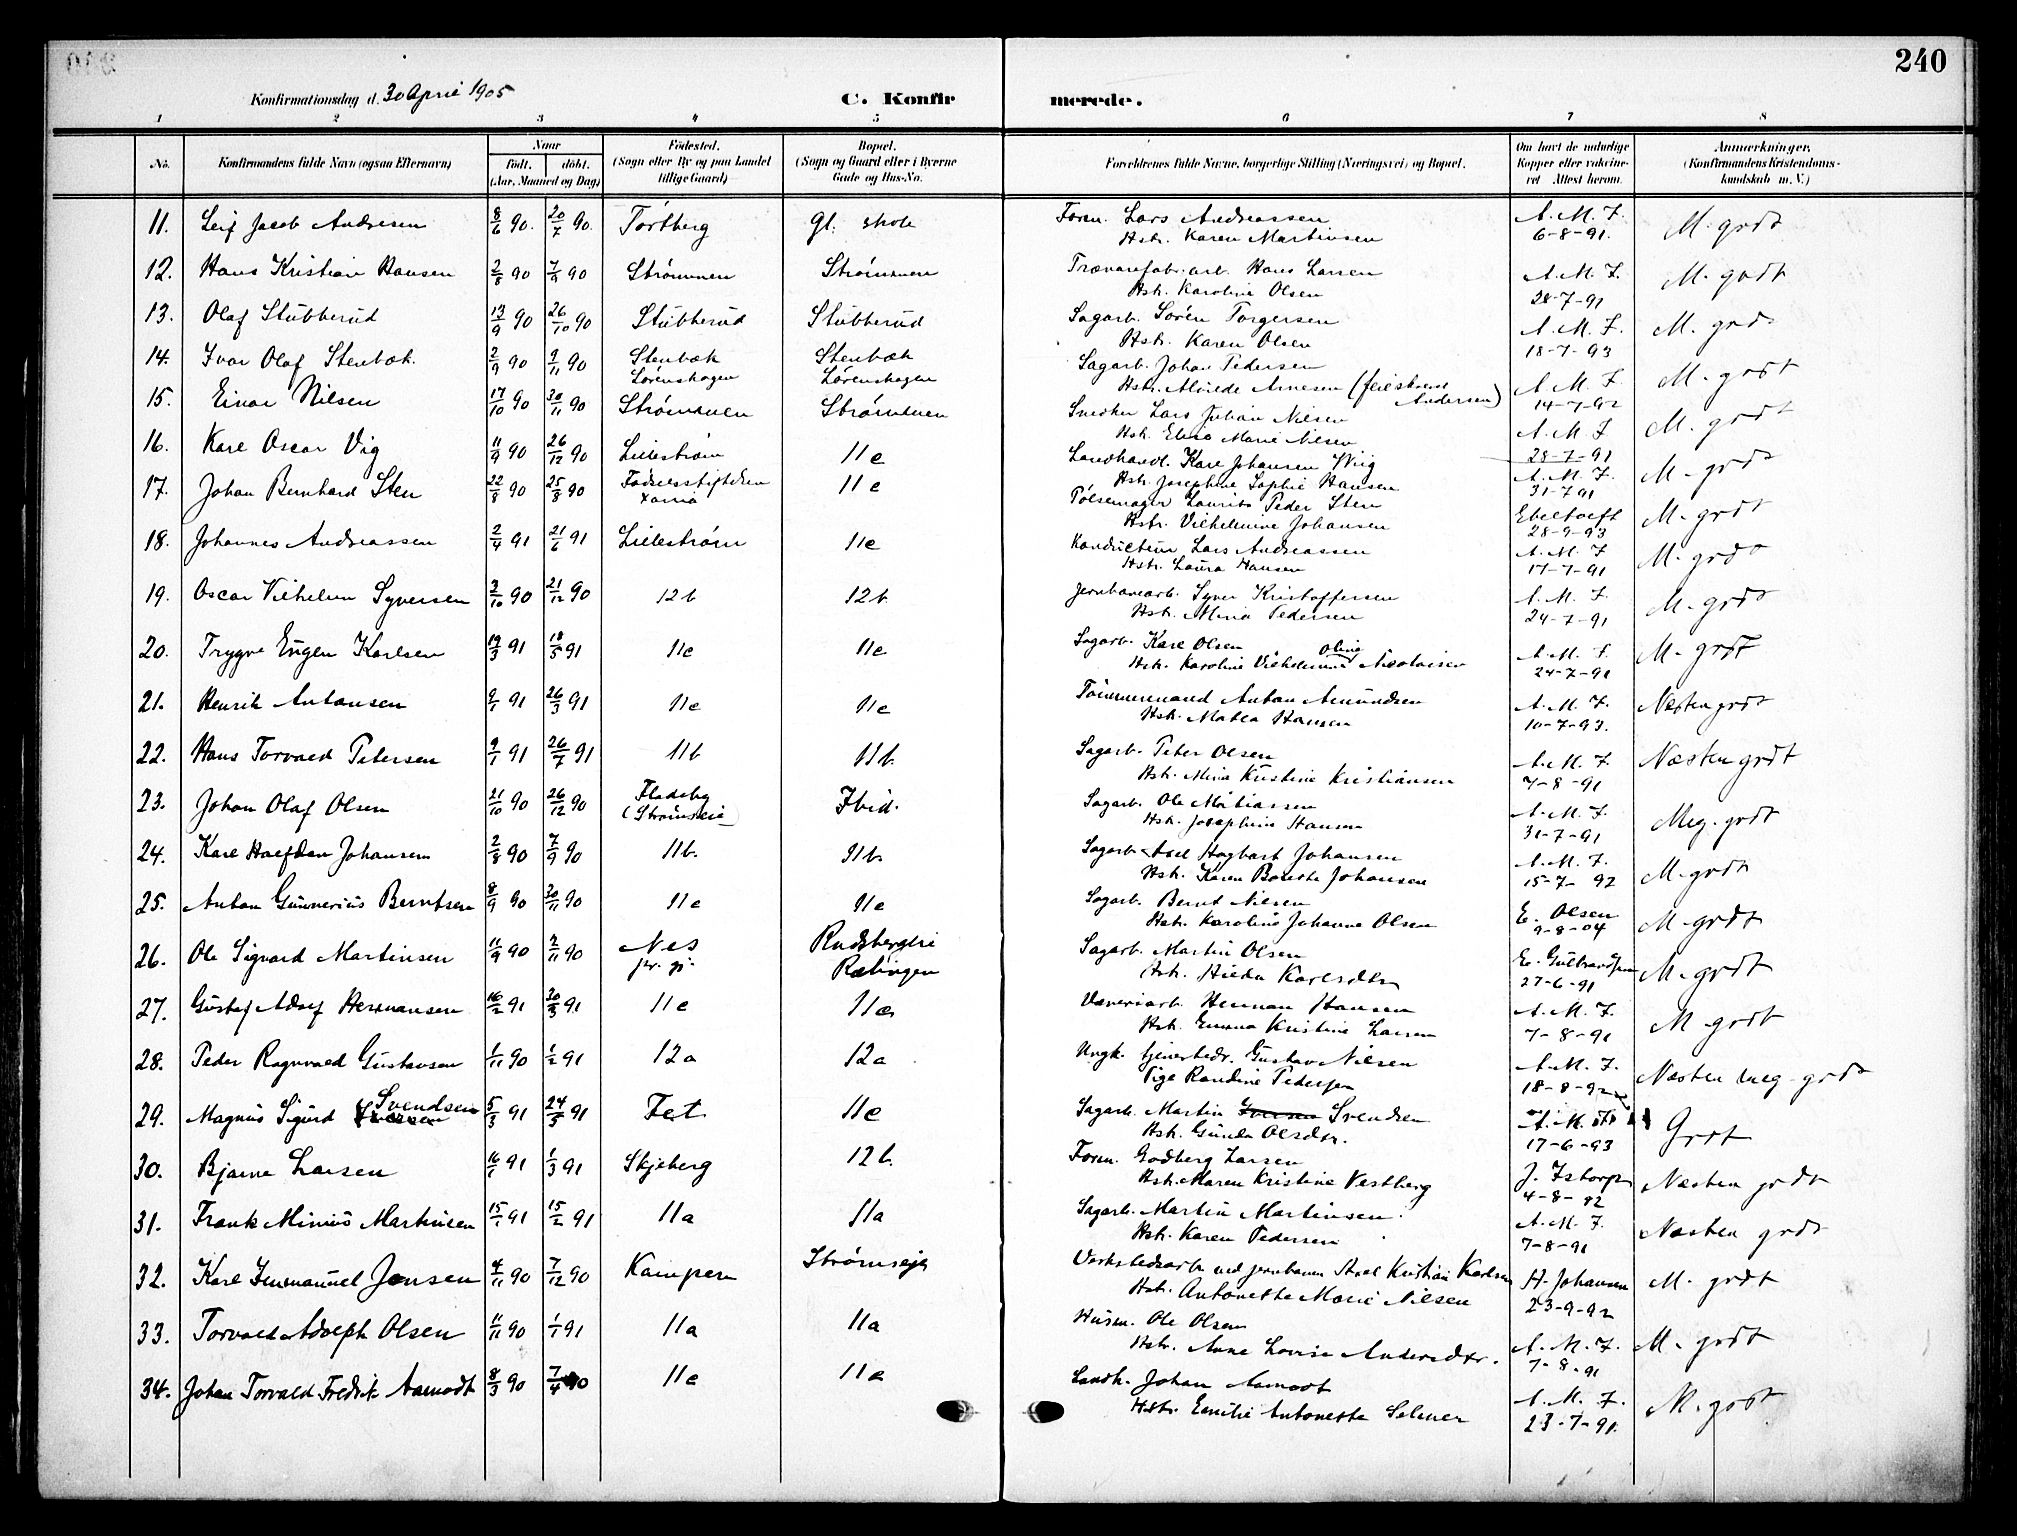 240
Konfirmationsdag d. 30 April 1905
C. Konfirmerede.
1 2 3 4 5 6 7 8
No. Konfirmandens fulde Navn (ogsaa Efternavn) Naar født. døbt. (Aar, Maaned og Dag) Fødested. (Sogn eller By og paa Landet tillige Gaard) Bopæl. (Sogn og Gaard eller i Byerne Gade og Hus-No. Forældrenes fulde Navne, borgerlige Stilling (Næringsvei) og Bopæl. Om havt de naturlige Kopper eller vakcineret. Attest herom. Anmerkninger. (Konfirmandens Kristendomskundskab m. V.)
11. Leif Jacob Andresen 8/6 90. 20/7 90. Tørtberg gl. skole Form. Lars Andreassen A. M. F. M. godt
Hstr. Karen Martinsen 6-8-91.
12. Hans Kristian Hansen 2/8 90 7/9 90 Strømmen Strømmen Trævarefabr. arb. Hans Larsen A. M. F. M. godt
Hstr. Karoline Olsen 28-7-91
13. Olaf Stubberud 13/9 90 26/10 90 Stubberud Stubberud Sagarb. Søren Torgersen A. M. F. M. godt
Hstr. Karen Olsen 18-7-93
14. Ivar Olaf Stenbæk. 2/9 90 9/11 90 Stenbæk Lørenskogen Stenbæk Lørenskogen Sagarb. Johan Pedersen A. M. F. M. godt
Hstr. Arnesen ( Andersen) 14-7-92
15. Einar Nilsen 17/10 90 30/11 90 Strømmen Strømmen Snedker Lars Johan Nilsen A. M. F M. godt
Hstr. Elise Marie Nilsen 28-7-91
16. Karl Oscar Vig 11/9 90 26/12 90 Lillestrøm 11c Landhandl. Karl Johansen Wiig A. M. F. M. godt
Hstr. Josephine Sophie Hansen 31-7 91
17. Johan Bernhard Sten 22/8 90 25/8 90 Fødselsstiftelsen Xania 11c Pølsemager Laurits Peder Sten Ebeltoft M. godt
Hstr. Vilhelmine Johansen 28-9-93
18. Johannes Andreassen 2/4 91 21/6 91 Lillestrøm 11c Konduktør Lars Andreassen A. M. F M. godt
Hstr. Laura Hansen 17-7-91
19. Oscar Vilhelm Syversen 3/10 90 21/12 90 12b 12b. Jernbanearb. Syver Kristoffersen A. M. F. M. godt
Hstr. Mina Pedersen 24-7-91
20. Trygve Eugen Karlsen 19/3 91 18/5 91 11c 11c Sagarb. Karl Olsen A. M. F. M. godt
Hstr. Karoline Vilhelmine Oline Nicolaisen 24-7-91
21. Henrik Antonsen 9/1 91 26/3 91 11c 11c Tømmermand Anton Amundsen A. M. F. Næsten godt
Hstr. Mathea Hansen 10-7-93.
22. Hans Torvald Petersen 9/1 91 26/7 91 11b 11b. Sagarb. Peter Olsen A. M. F Næsten godt
Hstr. Mina Kristine Kristiansen 7-8-91
23. Johan Olaf Olsen 21/10 90 26/12 90 Fladeby (Strømsveien) Ibid. Sagarb. Ole Mathiassen A. M. F. Meg. godt
Hstr. Josephine Hansen 31-7-91
24. Karl Halfdan Johansen 2/8 90 7/9 90 11b. 11b. Sagarb. Axel Hagbart Johansen A. M. F. M. godt
Hstr. Karen Johansen 15-7-92
25. Anton Gunnerius Berntsen 8/9 90 30/11 90 11c 11c Sagarb. Bernt Nilsen E. Olsen M. godt
Hstr. Karoline Johanne Olsen 9-8-04
26. Ole Sigvard Martinsen 11/9 90 2/11 90 Nes pr. gj. Rudsberglie Rælingen Sagarb. Martin Olsen E. Gulbrandsen M. godt
Hstr. Hilda Karlsdtr. 27-6-91
27. Gustaf Adolf Hermansen 16/2 91 30/3 91 11c 11c Væveriarb. Herman Hansen A. M. F. M. godt
Hstr. Emma Kristine Larsen 7-8-91
28. Peder Ragnvald Gustavsen 1/11 90 1/2 91 12a 12a Ungk. Gustav Nilsen A. M. F. Næsten meg. godt
Pige Randine Pedersen 18-8-92
29. Magnus Sigurd Iversen Svendsen 5/3 91 24/5 91 Fet 11c Sagarb. Martin Iversen Svendsen A. M. F. Godt
Hstr. Gunda Olsdtr. 17-6-93
30. Bjarne Larsen 16/1 91 1/3 91 Skjeberg 12b. Form. Godberg Larsen J. Istorp Næsten godt
Hstr. Maren Kristine Vestberg 4-8-82
31. Frank Minius Martinsen 15/1 91 15/2 91 11a 11a Sagarb. Martin Martinsen A. M. F. Næsten godt
Hstr. Karen Pedersen 7-8-91
32. Karl Immanuel Jensen 4/11 90 7/12 90 Kampen Strømsvejen Verkstedsarb. ved jernbanen Axel Kristian Karlsen H. Johansen M. godt
Hstr. Antonette Marie Nilsen 23-9-92
33. Torvald Adolph Olsen 11/11 90 1/1 91 11a 11a Husm. Ole Olsen A. M. F. M. godt
Hstr. Anne Lovise Andersdtr. 7-8-91
34. Johan Torvald Fredrik Aamodt 8/3 90 7/4 90 11c 11c Landh. Johan Aamodt A. M. F. M. godt
Hstr. Emilie Antonette Selmer 23-7-91.